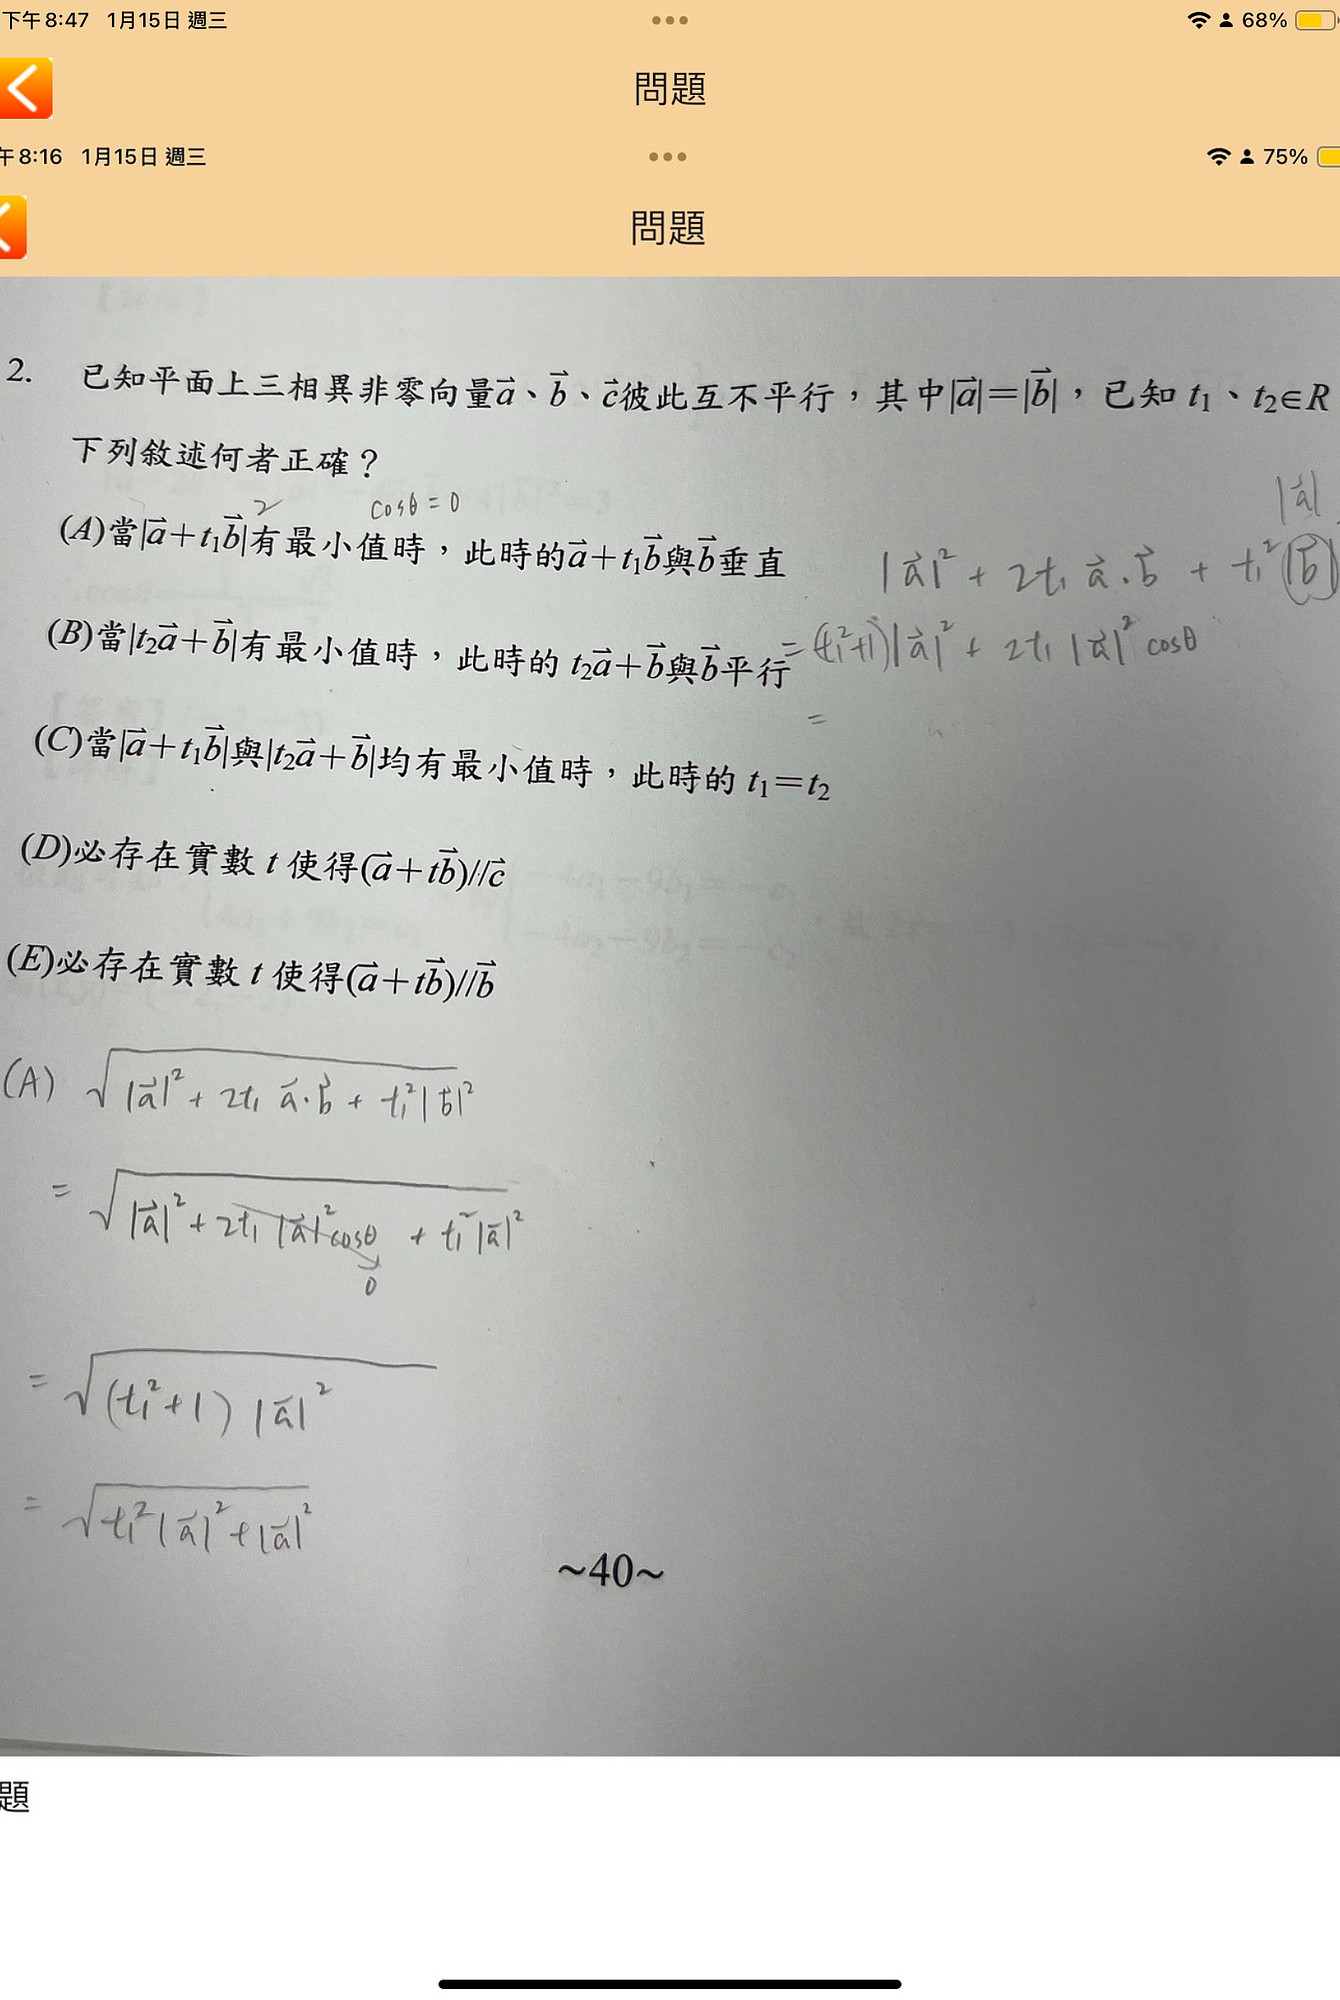 下午8:47 1月15日 週三
68%
問題
午8:16 1月15日 週三
75%
問題
2. 已知平面上三相異非零向量a⃗、b⃗、c⃗彼此互不平行，其中|a⃗|=|b⃗|，已知 t₁、t₂∈R
下列敘述何者正確？
|a⃗|
2 cosθ=0
(A)當|a⃗+t₁b⃗|有最小值時，此時的a⃗+t₁b⃗與b⃗垂直
|a⃗|²+2t₁a⃗·b⃗+t₁²|b⃗|
(B)當|t₂a⃗+b⃗|有最小值時，此時的 t₂a⃗+b⃗與b⃗平行
=(t₁²+1)|a⃗|²+2t₁|a⃗|²cosθ
=
(C)當|a⃗+t₁b⃗|與|t₂a⃗+b⃗|均有最小值時，此時的 t₁=t₂
(D)必存在實數 t 使得(a⃗+tb⃗)//c⃗
(E)必存在實數 t 使得(a⃗+tb⃗)//b⃗
(A) √|a⃗|²+2t₁a⃗·b⃗+t₁²|b⃗|²
=√|a⃗|²+2t₁|a⃗|²cosθ+t₁²|a⃗|²
0
=√(t₁²+1)|a⃗|²
=√t₁²|a⃗|²+|a⃗|²
~40~
題